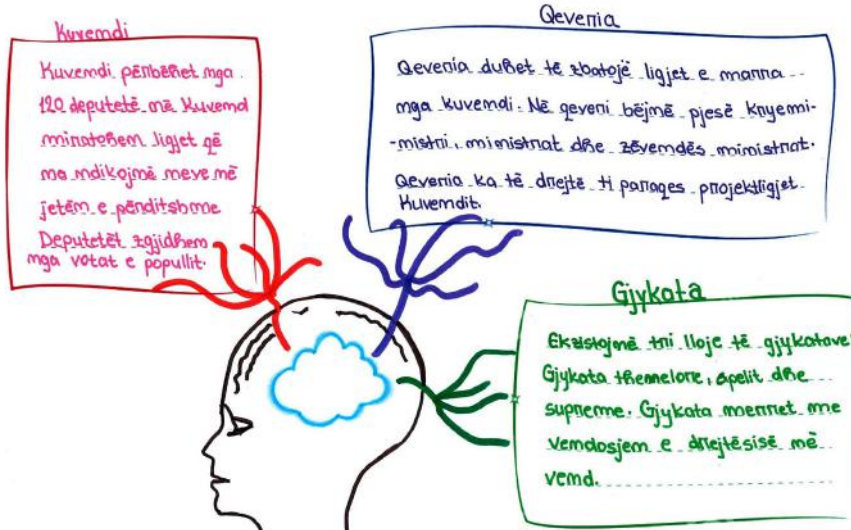 Kuvendi
Kuvendi përbëhet nga
120 deputetë në Kuvend
miratohen ligjet që
na ndikojnë neve në
jetën e përditshme
Deputetët zgjidhen
nga votat e popullit.
Qeveria
Qeveria duhet të zbatojë ligjet e marra
nga kuvendi. Në qeveri bëjnë pjesë kryemi-
-nistri, ministrat dhe zëvendës ministrat.
Qeveria ka të drejtë ti paraqes projektligjet
Kuvendit.
Gjykata
Ekzistojnë tri lloje të gjykatave
Gjykata themelore, apelit dhe
supreme. Gjykata merret me
vendosjen e drejtësisë në
vend.